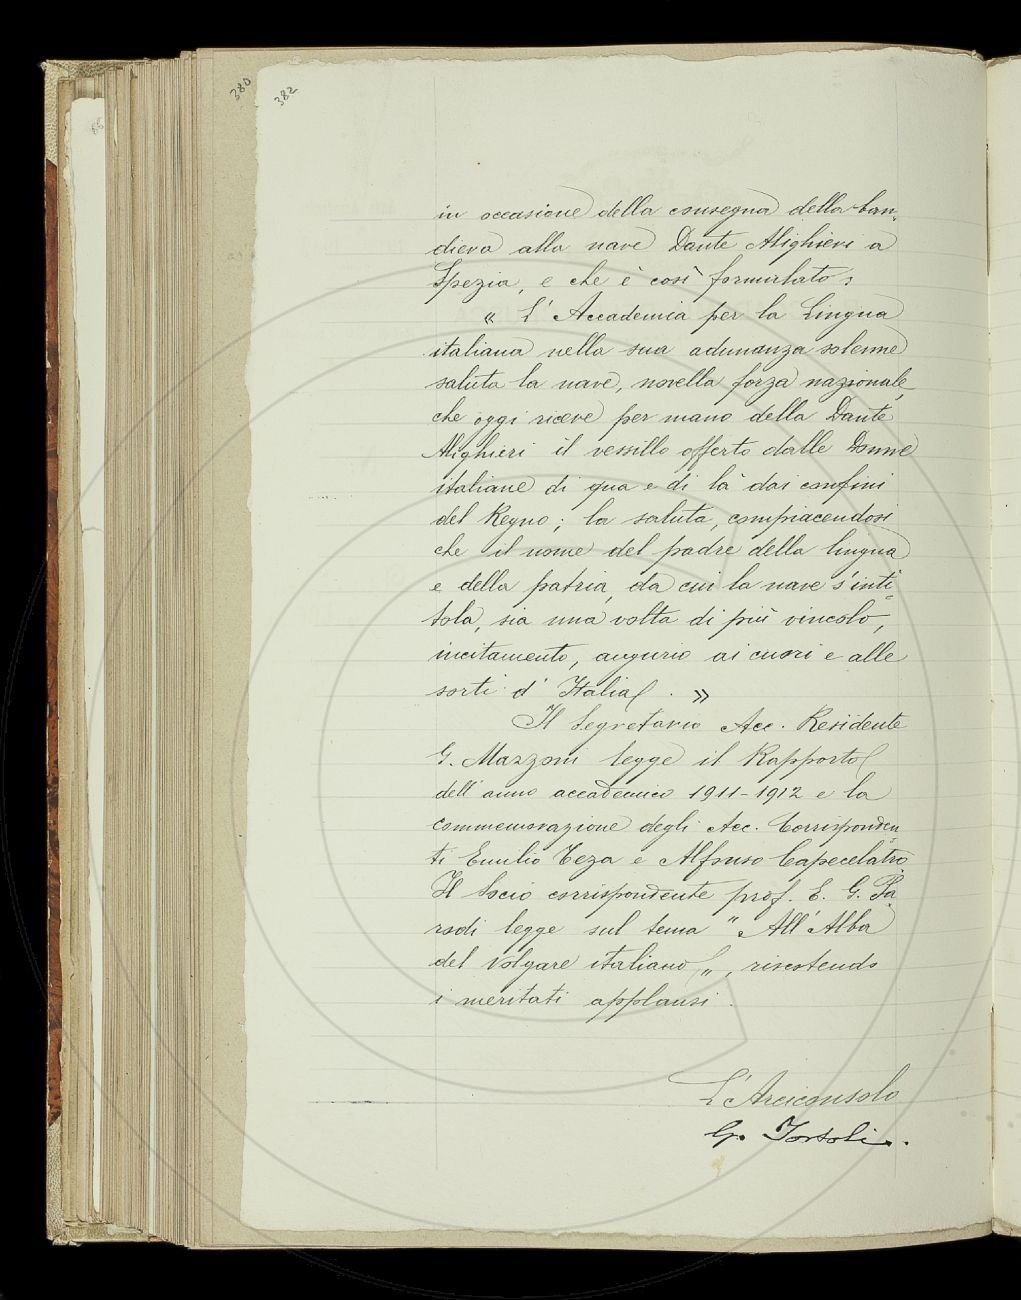 380
382
in occasione della consegna della ban-
diera alla nave Dante Alighieri a
Spezia, e che è così formulato:
« L'Accademia per la Lingua
italiana nella sua adunanza solenne
saluta la nave, novella forza nazionale,
che oggi riceve per mano della Dante
Alighieri il vessillo offerto dalle Donne
italiane di qua e di là dai confini
del Regno; la saluta, compiacendosi
che il nome del padre della lingua
e della patria, da cui la nave s'inti-
tola, sia una volta di più vincolo,
incitamento, augurio ai cuori e alle
sorti d'Italia. »
Il Segretario Acc. Residente
G. Mazzoni legge il Rapporto
dell'anno accademico 1911-1912 e la
commemorazione degli Acc. Corrisponden-
ti Emilio Teza e Alfonso Capecelatro.
Il Socio corrispondente prof. E. G. Pa-
rodi legge sul tema "All'Alba
del Volgare italiano", riscotendo
i meritati applausi.
L'Arciconsolo
G. Tortoli.